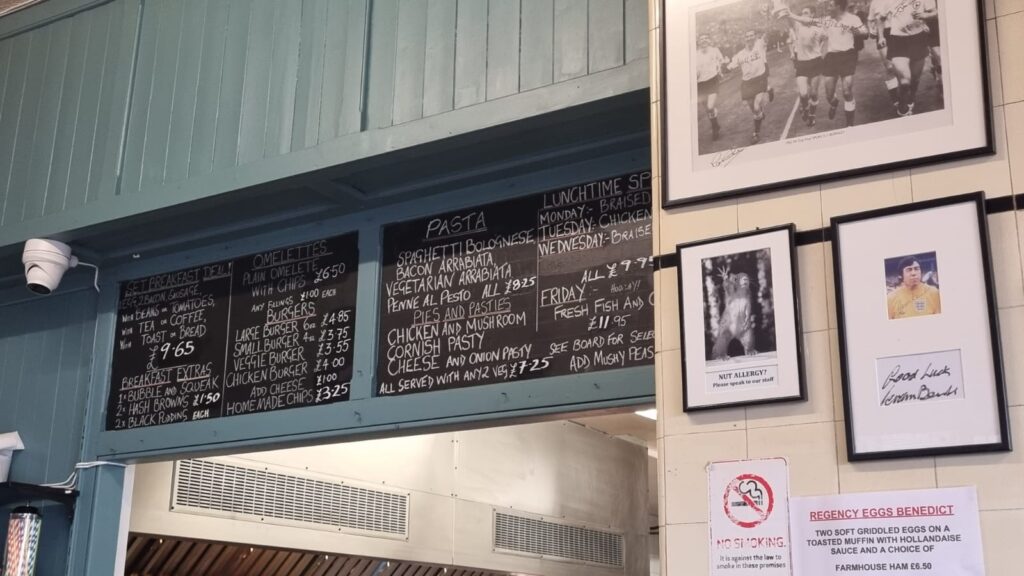 SET BREAKFAST DEAL
EGG BACON SAUSAGE
WITH BEANS OR TOMATOES
WITH TEA OR COFFEE
WITH TOAST OR BREAD
£9.65
BREAKFAST EXTRAS
BUBBLE AND SQUEAK
HASH BROWNS £1.50
2x BLACK PUDDING EACH
OMELETTES
PLAIN OMELETTE
WITH CHIPS £6.50
ANY FILLINGS £1.00 EACH
BURGERS
LARGE BURGER 6oz £4.85
SMALL BURGER 4oz £3.75
VEGGIE BURGER £3.55
CHICKEN BURGER £4.00
ADD CHEESE £1.00
HOMEMADE CHIPS £3.25
PASTA
SPAGHETTI BOLOGNESE
BACON ARRABIATA
VEGETARIAN ARRABIATA
PENNE AL PESTO ALL £8.25
PIES AND PASTIES
CHICKEN AND MUSHROOM
CORNISH PASTY
CHEESE AND ONION PASTY
ALL SERVED WITH ANY 2 VEG £7.25
LUNCHTIME SP
MONDAY:- BRAISED
TUESDAY:- CHICKEN
WEDNESDAY:- BRAISE
ALL £9.95
FRIDAY - HOORAY!!
FRESH FISH AND C
£11.95
SEE BOARD FOR SELE
ADD MUSHY PEAS
NUT ALLERGY?
Please speak to our staff
Good Luck
Gordon Banks
NO SMOKING.
It is against the law to
smoke in these premises
REGENCY EGGS BENEDICT
TWO SOFT GRIDDLED EGGS ON A
TOASTED MUFFIN WITH HOLLANDAISE
SAUCE AND A CHOICE OF
FARMHOUSE HAM £6.50